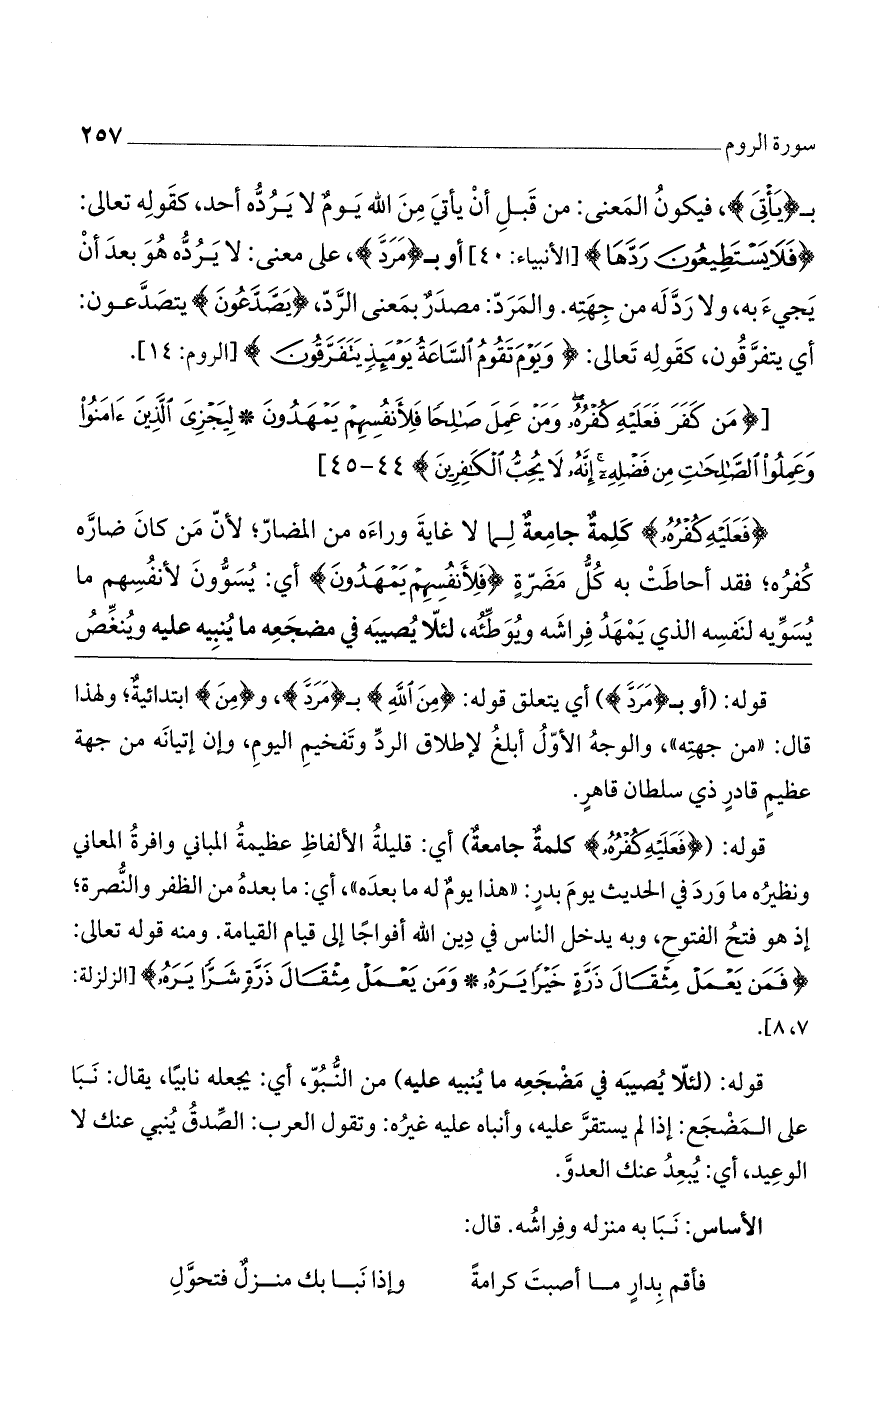 سورة الروم ٢٥٧
بـ﴿يَأْتِىَ﴾، فيكونُ المَعنى: من قَبلِ أنْ يأتيَ مِنَ الله يَومٌ لا يَرُدُّه أحد، كقَولِه تعالى:
﴿فَلَا يَسْتَطِيعُونَ رَدَّهَا﴾ [الأنبياء: ٤٠] أو بـ﴿مَرَدَّ﴾، على معنى: لا يَرُدُّه هُوَ بعدَ أنْ
يَجيءَ به، ولا رَدَّ لَه من جِهَتِه. والمَرَدّ: مصدَرٌ بمَعنى الرَّدّ، ﴿يَصَّدَّعُونَ﴾ يتصَدَّعون:
أي يتفرَّقُون، كقَولِه تَعالى: ﴿وَيَوْمَ تَقُومُ ٱلسَّاعَةُ يَوْمَئِذٍ يَتَفَرَّقُونَ﴾ [الروم: ١٤].
[﴿مَن كَفَرَ فَعَلَيْهِ كُفْرُهُۥ ۖ وَمَنْ عَمِلَ صَـٰلِحًا فَلِأَنفُسِهِمْ يَمْهَدُونَ * لِيَجْزِىَ ٱلَّذِينَ ءَامَنُوا۟
وَعَمِلُوا۟ ٱلصَّـٰلِحَـٰتِ مِن فَضْلِهِۦٓ ۚ إِنَّهُۥ لَا يُحِبُّ ٱلْكَـٰفِرِينَ﴾ ٤٤-٤٥]
﴿فَعَلَيْهِ كُفْرُهُۥ﴾ كَلِمةٌ جامعةٌ لِـما لا غايةَ وراءَه من المضارّ؛ لأنّ مَن كانَ ضارَّه
كُفرُه؛ فقد أحاطَتْ به كُلُّ مَضَرّةٍ ﴿فَلِأَنفُسِهِمْ يَمْهَدُونَ﴾ أي: يُسَوُّونَ لأنفُسِهم ما
يُسَوِّيه لنَفسِه الذي يَمْهَدُ فِراشَه ويُوَطِّئُه، لئلّا يُصيبَه في مضجَعِه ما يُنبِيه عليه ويُنغِّصُ
قوله: (أو بـ﴿مَرَدَّ﴾) أي يتعلق قوله: ﴿مِنَ ٱللَّهِ﴾ بـ﴿مَرَدَّ﴾، و﴿مِنَ﴾ ابتدائيةٌ؛ ولهذا
قال: «من جهتِه»، والوجهُ الأوّلُ أبلغُ لإطلاق الردِّ وتَفخيمِ اليومِ، وإن إتيانَه من جهة
عظيمٍ قادرٍ ذي سلطان قاهرٍ.
قوله: (﴿فَعَلَيْهِ كُفْرُهُۥ﴾ كلمةٌ جامعةٌ) أي: قليلةُ الألفاظِ عظيمةُ المباني وافرةُ المعاني
ونظيرُه ما وَردَ في الحديث يومَ بدرٍ: «هذا يومٌ له ما بعدَه»، أي: ما بعدهُ من الظفر والنُّصرة؛
إذ هو فتحُ الفتوحِ، وبه يدخل الناس في دِين الله أفواجًا إلى قيام القيامة. ومنه قوله تعالى:
﴿فَمَن يَعْمَلْ مِثْقَالَ ذَرَّةٍ خَيْرًا يَرَهُۥ * وَمَن يَعْمَلْ مِثْقَالَ ذَرَّةٍ شَرًّا يَرَهُۥ﴾ [الزلزلة:
٧، ٨].
قوله: (لئلّا يُصيبَه في مَضْجَعِه ما يُنبيه عليه) من النُّبُوّ، أي: يجعله نابيًا، يقال: نَبَا
على الـمَضْجَع: إذا لم يستقرَّ عليه، وأنباه عليه غيرُه: وتقول العرب: الصِّدقُ يُنبي عنك لا
الوعِيد، أي: يُبعِدُ عنك العدوَّ.
الأساس: نَبَا به منزله وفِراشُه. قال:
فأقم بِدارٍ ما أصبتَ كرامةً وإذا نَبا بك منزلٌ فتحوَّلِ